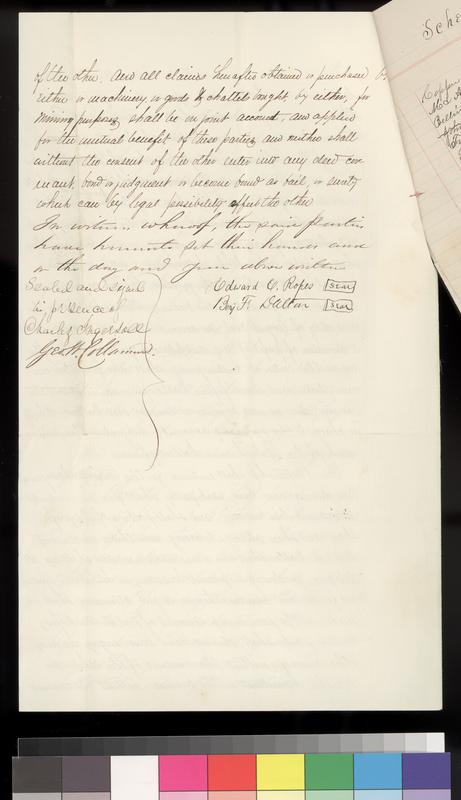 of the other. And all claims hereafter obtained or purchased by
either or machinery or goods & chattels bought, by either, for
mining purposes, shall be on joint account, and applied
for the mutual benefit of these parties, and neither shall
without the consent of the other enter into any deed cov
enant, bond or judgment or become bound as bail, or surety
which can by legal possibility affect the other
In witness whereof, the said parties
have hereunto set their hands and
on the day and year above written
Sealed and signed
in presence of
Charles Ingersoll
Geo W. Collamore.
Edward C. Ropes [Seal]
Benj Fr Dalton [Seal]
Sche
Copper